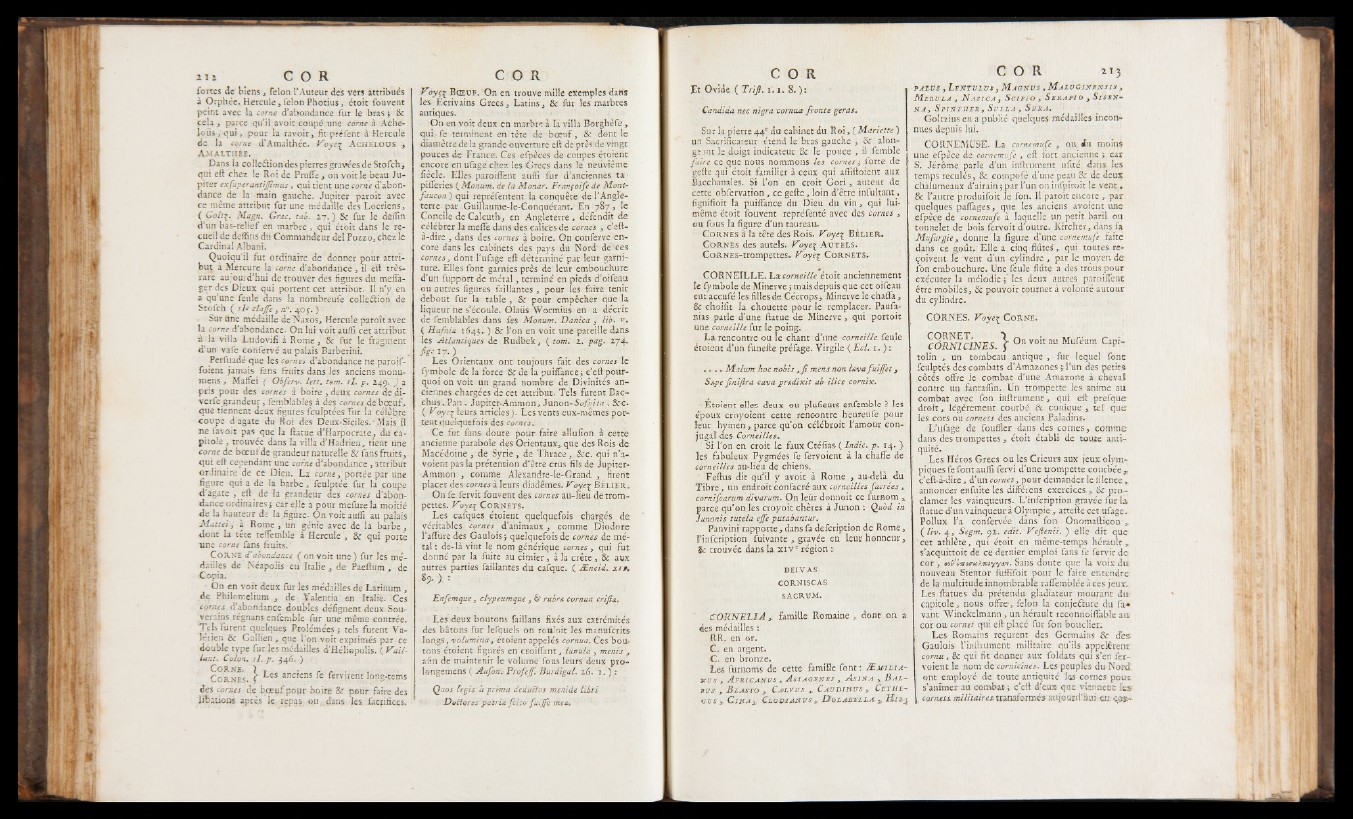 212 COR
sortes de biens, selon l'Auteur des vers attribués
à Orphée. Hercule, selon Photius, étoit souvent
peint avec la corne d'abondance sur le bras ; &
cela, parce qu'il avoit coupé une corne à Ache-
loüs, qui, pour la ravoir, fit présent à Hercule
de la corne d'Amalthée. Voyez ACHELOUS,
AMALTHÉE.
Dans la collection des pierres gravées de Stosch,
qui est chez le Roi de Prusse, on voit le beau Ju-
piter exsuperantissimus, qui tient une corne d'abon-
dance de la main gauche. Jupiter paroît avec
ce même attribut sur une médaille des Locriens,
( Goltz. Magn. Grec. tab. 27. ) & sur le dessin
d'un bas-relief en marbre, qui étoit dans le re-
cueil de dessins du Commandeur del Pozzo, chez le
Cardinal Albani.
Quoiqu'il fut ordinaire de donner pour attri-
but à Mercure la corne d'abondance, il est très-
rare aujourd'hui de trouver des figures du messa-
ger des Dieux qui portent cet attribut. Il n'y en
a qu'une seule dans la nombreuse collection de
Stosch ( IIe classe, n°. 405. )
Sur une médaille de Naxos, Hercule paroît avec
la corne d'abondance. On lui voit aussi cet attribut
à la villa Ludovisi à Rome, & sur le fragment
d'un vase conservé au palais Barberini.
Persuadé que les cornes d'abondance ne parois-
soient jamais sans fruits dans les anciens monu-
mens, Maffei ( Observ. lett. tom. II. p. 249. ) a
pris pour des cornes à boire, deux cornes de di-
verse grandeur, semblables à des cornes de bœuf,
que tiennent deux figures sculptées sur la célèbre
coupe d'agate du Roi des Deux-Siciles. Mais il
ne savoit pas que la statue d'Harpocrate, du ca-
pitole, trouvée dans la villa d'Hadrien, tient une
corne de bœuf de grandeur naturelle & sans fruits,
qui est cependant une corne d'abondance, attribut
ordinaire de ce Dieu. La corne, portée par une
figure qui a de la barbe, sculptée sur la coupe
d'agate, est de la grandeur des cornes d'abon-
dance ordinaires ; car elle a pour mesure la moitié
de la hauteur de la figure. On voit aussi au palais
Mattei, à Rome, un génie avec de la barbe,
dont la tête ressemble à Hercule, & qui porte
une corne sans fruits.
CORNE d'abondance ( on voit une ) sur les mé-
dailles de Néapolis en Italie, de Paestum, de
Copia.
On en voit deux sur les médailles de Larinum,
de Philomelium, de Valentia en Italie. Ces
cornes d'abondance doubles désignent deux Sou-
verains régnans ensemble sur une même contrée.
Tels furent quelques Ptolémées ; tels furent Va-
lérien & Gallien, que l'on voit exprimés par ce
double type sur les médailles d'Héliopolis. ( Vail-
lant. Colon. II. p. 346. )
CORNE. } Les anciens se servirent long-tems
CORNES.
des cornes de bœuf pour boire & pour faire des
libations après le repas ou dans les sacrifices.
COR
Voyez BŒUF. On en trouve mille exemples dans
les Écrivains Grecs, Latins, & sur les marbres
antiques.
On en voit deux en marbre à la villa Borghèse,
qui se terminent en tête de bœuf, & dont le
diamètre de la grande ouverture est de près de vingt
pouces de France. Ces espèces de coupes étoient
encore en usage chez les Grecs dans le neuvième
siècle. Elles paroissent aussi sur d'anciennes ta-
pisseries ( Monum. de la Monar. Françoise de Mont-
faucon ) qui représentent la conquête de l'Angle-
terre par Guillaume-le-Conquérant. En 787, le
Concile de Calcuth, en Angleterre, défendit de
célébrer la messe dans des calices de cornes, c'est-
à-dire, dans des cornes à boire. On conserve en-
core dans les cabinets des pays du Nord de ces
cornes, dont l'usage est déterminé par leur garni-
ture. Elles sont garnies près de leur embouchure
d'un support de métal, terminé en pieds d'oiseau
ou autres figures saillantes, pour les faire tenir
debout sur la table, & pour empêcher que la
liqueur ne s'écoule. Olaüs Wormius en a décrit
de semblables dans ses Monum. Danica, lib. v.
( Hafnia 1643. ) & l'on en voit une pareille dans
les Atlantiques de Rudbek, ( tom. 2. pag. 274.
fig. 17. )
Les Orientaux ont toujours fait des cornes le
symbole de la force & de la puissance ; c'est pour-
quoi on voit un grand nombre de Divinités an-
ciennes chargées de cet attribut. Tels furent Bac-
chus, Pan, Jupiter-Ammon, Junon-Sospita, &c.
( Voyez leurs articles ). Les vents eux-mêmes por-
tent quelquefois des cornes.
Ce fut sans doute pour faire allusion à cette
ancienne parabole des Orientaux, que des Rois de
Macédoine, de Syrie, de Thrace, &c. qui n'a-
voient pas la prétention d'être crus fils de Jupiter-
Ammon, comme Alexandre-le-Grand, firent
placer des cornes à leurs diadêmes. Voyez BÉLIER.
On se servit souvent des cornes au-lieu de trom-
pettes. Voyez CORNETS.
Les casques étoient quelquefois chargés de
véritables cornes d'animaux, comme Diodore
l'assure des Gaulois ; quelquefois de cornes de mé-
tal : de-là vint le nom générique cornes, qui fut
donné par la suite au cimier, à la crête, & aux
autres parties saillantes du casque. ( Æneid. XII.
89. ) :
Ensemque, clypeumque, & rubra cornua cristæ.
Les deux boutons saillans fixés aux extrémités
des bâtons sur lesquels on rouloit les manuscrits
longs, volumina, étoient appelés cornua. Ces bou-
tons étoient figurés en croissant, lunula, menis,
afin de maintenir le volume sous leurs deux pro-
longemens ( Auson. Profess. Burdigal. 26. 1. ) :
Quos legis à prima deductos menide libri
Doctores patriæ scito fuisse meæ.
COR
Et Ovide ( Trist. 1. 1. 8. ) :
Candida nec nigra cornua fronte geras.
Sur la pierre 44e du cabinet du Roi, ( Mariette )
un Sacrificateur étend le bras gauche, & alon-
geant le doigt indicateur & le pouce, il semble
faire ce que nous nommons les cornes ; sorte de
geste qui étoit familier à ceux qui assistoient aux
Bacchanales. Si l'on en croit Gori, auteur de
cette observation, ce geste, loin d'être insultant,
signifioit la puissance du Dieu du vin, qui lui-
même étoit souvent représenté avec des cornes,
ou sous la figure d'un taureau.
CORNES à la tête des Rois. Voyez BÉLIER.
CORNES des autels. Voyez AUTELS.
CORNES-trompettes. Voyez CORNETS.
CORNEILLE. La corneille étoit anciennement
le symbole de Minerve ; mais depuis que cet oiseau
eut accusé les filles de Cécrops, Minerve le chassa,
& choisit la chouette pour le remplacer. Pausa-
nias parle d'une statue de Minerve, qui portoit
une corneille sur le poing.
La rencontre ou le chant d'une corneille seule
étoient d'un funeste présage. Virgile ( Ecl. 1. ) :
.... Malum hoc nobis, si mens non læva fuisset,
Sæpe sinistra cava prædixit ab ilice cornix.
Étoient-elles deux ou plusieurs ensemble ? les
époux croyoient cette rencontre heureuse pour
leur hymen, parce qu'on célébroit l'amour con-
jugal des Corneilles.
Si l'on en croit le faux Ctésias ( Indic. p. 14. )
les fabuleux Pygmées se servoient à la chasse de
corneilles au-lieu de chiens.
Festus dit qu'il y avoit à Rome, au-delà du
Tibre, un endroit consacré aux corneilles sacrées,
corniscarum divarum. On leur donnoit ce surnom,
parce qu'on les croyoit chères à Junon : Quòd in
Junonis tutela esse putabantur.
Panvini rapporte, dans sa description de Rome,
l'inscription suivante, gravée en leur honneur,
& trouvée dans la XIVe région :
DEIVAS
CORNISCAS
SACRUM.
CORNELIA, famille Romaine, dont on a
des médailles :
RR. en or.
C. en argent.
C. en bronze.
Les surnoms de cette famille sont : ÆMILIA-
NUS, AFRICANUS, ASIAGENES, ASINA, BAL-
BUS, BLASIO, CALVUS, CAUDINUS, CETHE-
GUS, CINA, CLODIANUS, DOLABELLA,
COR 213
PALUS, LENTULUS, MAGNUS, MALUGINENSIS,
MERULA, NASICA, SCIPIO, SERAPIO, SISEN-
NA, SPINTHER, SULLA, SURA.
Goltzius en a publié quelques médailles incon-
nues depuis lui.
CORNEMUSE. La cornemuse, ou du moins
une espèce de cornemuse, est fort ancienne ; car
S. Jérôme parle d'un instrument usité dans les
temps reculés, & composé d'une peau & de deux
chalumeaux d'airain ; par l'un on inspiroit le vent,
& l'autre produisoit le son. Il paroît encore, par
quelques passages, que les anciens avoient une
espèce de cornemuse à laquelle un petit baril ou
tonnelet de bois servoit d'outre. Kircher, dans sa
Musurgie, donne la figure d'une cornemuse faite
dans ce goût. Elle a cinq flûtes, qui toutes re-
çoivent le vent d'un cylindre, par le moyen de
son embouchure. Une seule flûte a des trous pour
exécuter la mélodie ; les deux autres paroissent
être mobiles, & pouvoir tourner à volonté autour
du cylindre.
CORNES. Voyez CORNE.
CORNET. } On voit au Muséum Capi-
CORNICINES.
tolin, un tombeau antique, sur lequel sont
sculptés des combats d'Amazones ; l'un des petits
côtés offre le combat d'une Amazone à cheval
contre un fantassin. Un trompette les anime au
combat avec son instrument, qui est presque
droit, légérement courbé & conique, tel que
les cors ou cornets des anciens Paladins.
L'usage de souffler dans des cornes, comme
dans des trompettes, étoit établi de toute anti-
quité.
Les Héros Grecs ou les Crieurs aux jeux olym-
piques se sont aussi servi d'une trompette courbée,
c'est-à-dire, d'un cornet, pour demander le silence,
annoncer ensuite les différens exercices, & pro-
clamer les vainqueurs. L'inscription gravée sur la
statue d'un vainqueur à Olympie, atteste cet usage.
Pollux l'a conservée dans son Onomasticon,
( liv. 4, Segm. 92. edit. Vestenii. ) elle dit que
cet athlète, qui étoit en même-temps hérault,
s'acquittoit de ce dernier emploi sans se servir de
cor, Sans doute que la voix du
nouveau Stentor suffisoit pour se faire entendre
de la multitude innombrable rassemblée à ces jeux.
Les statues du prétendu gladiateur mourant du
capitole, nous offre, selon la conjecture du sa-
vant Winckelmann, un hérault reconnoissable au
cor ou cornet qui est placé sur son bouclier.
Les Romains reçurent des Germains & des
Gaulois l'instrument militaire qu'ils appelèrent
cornu, & qui fit donner aux soldats qui s'en ser-
voient le nom de cornicines. Les peuples du Nord
ont employé de toute antiquité les cornes pour
s'animer au combat ; c'est d'eux que viennent les
cornets militaires transformés aujourd'hui en